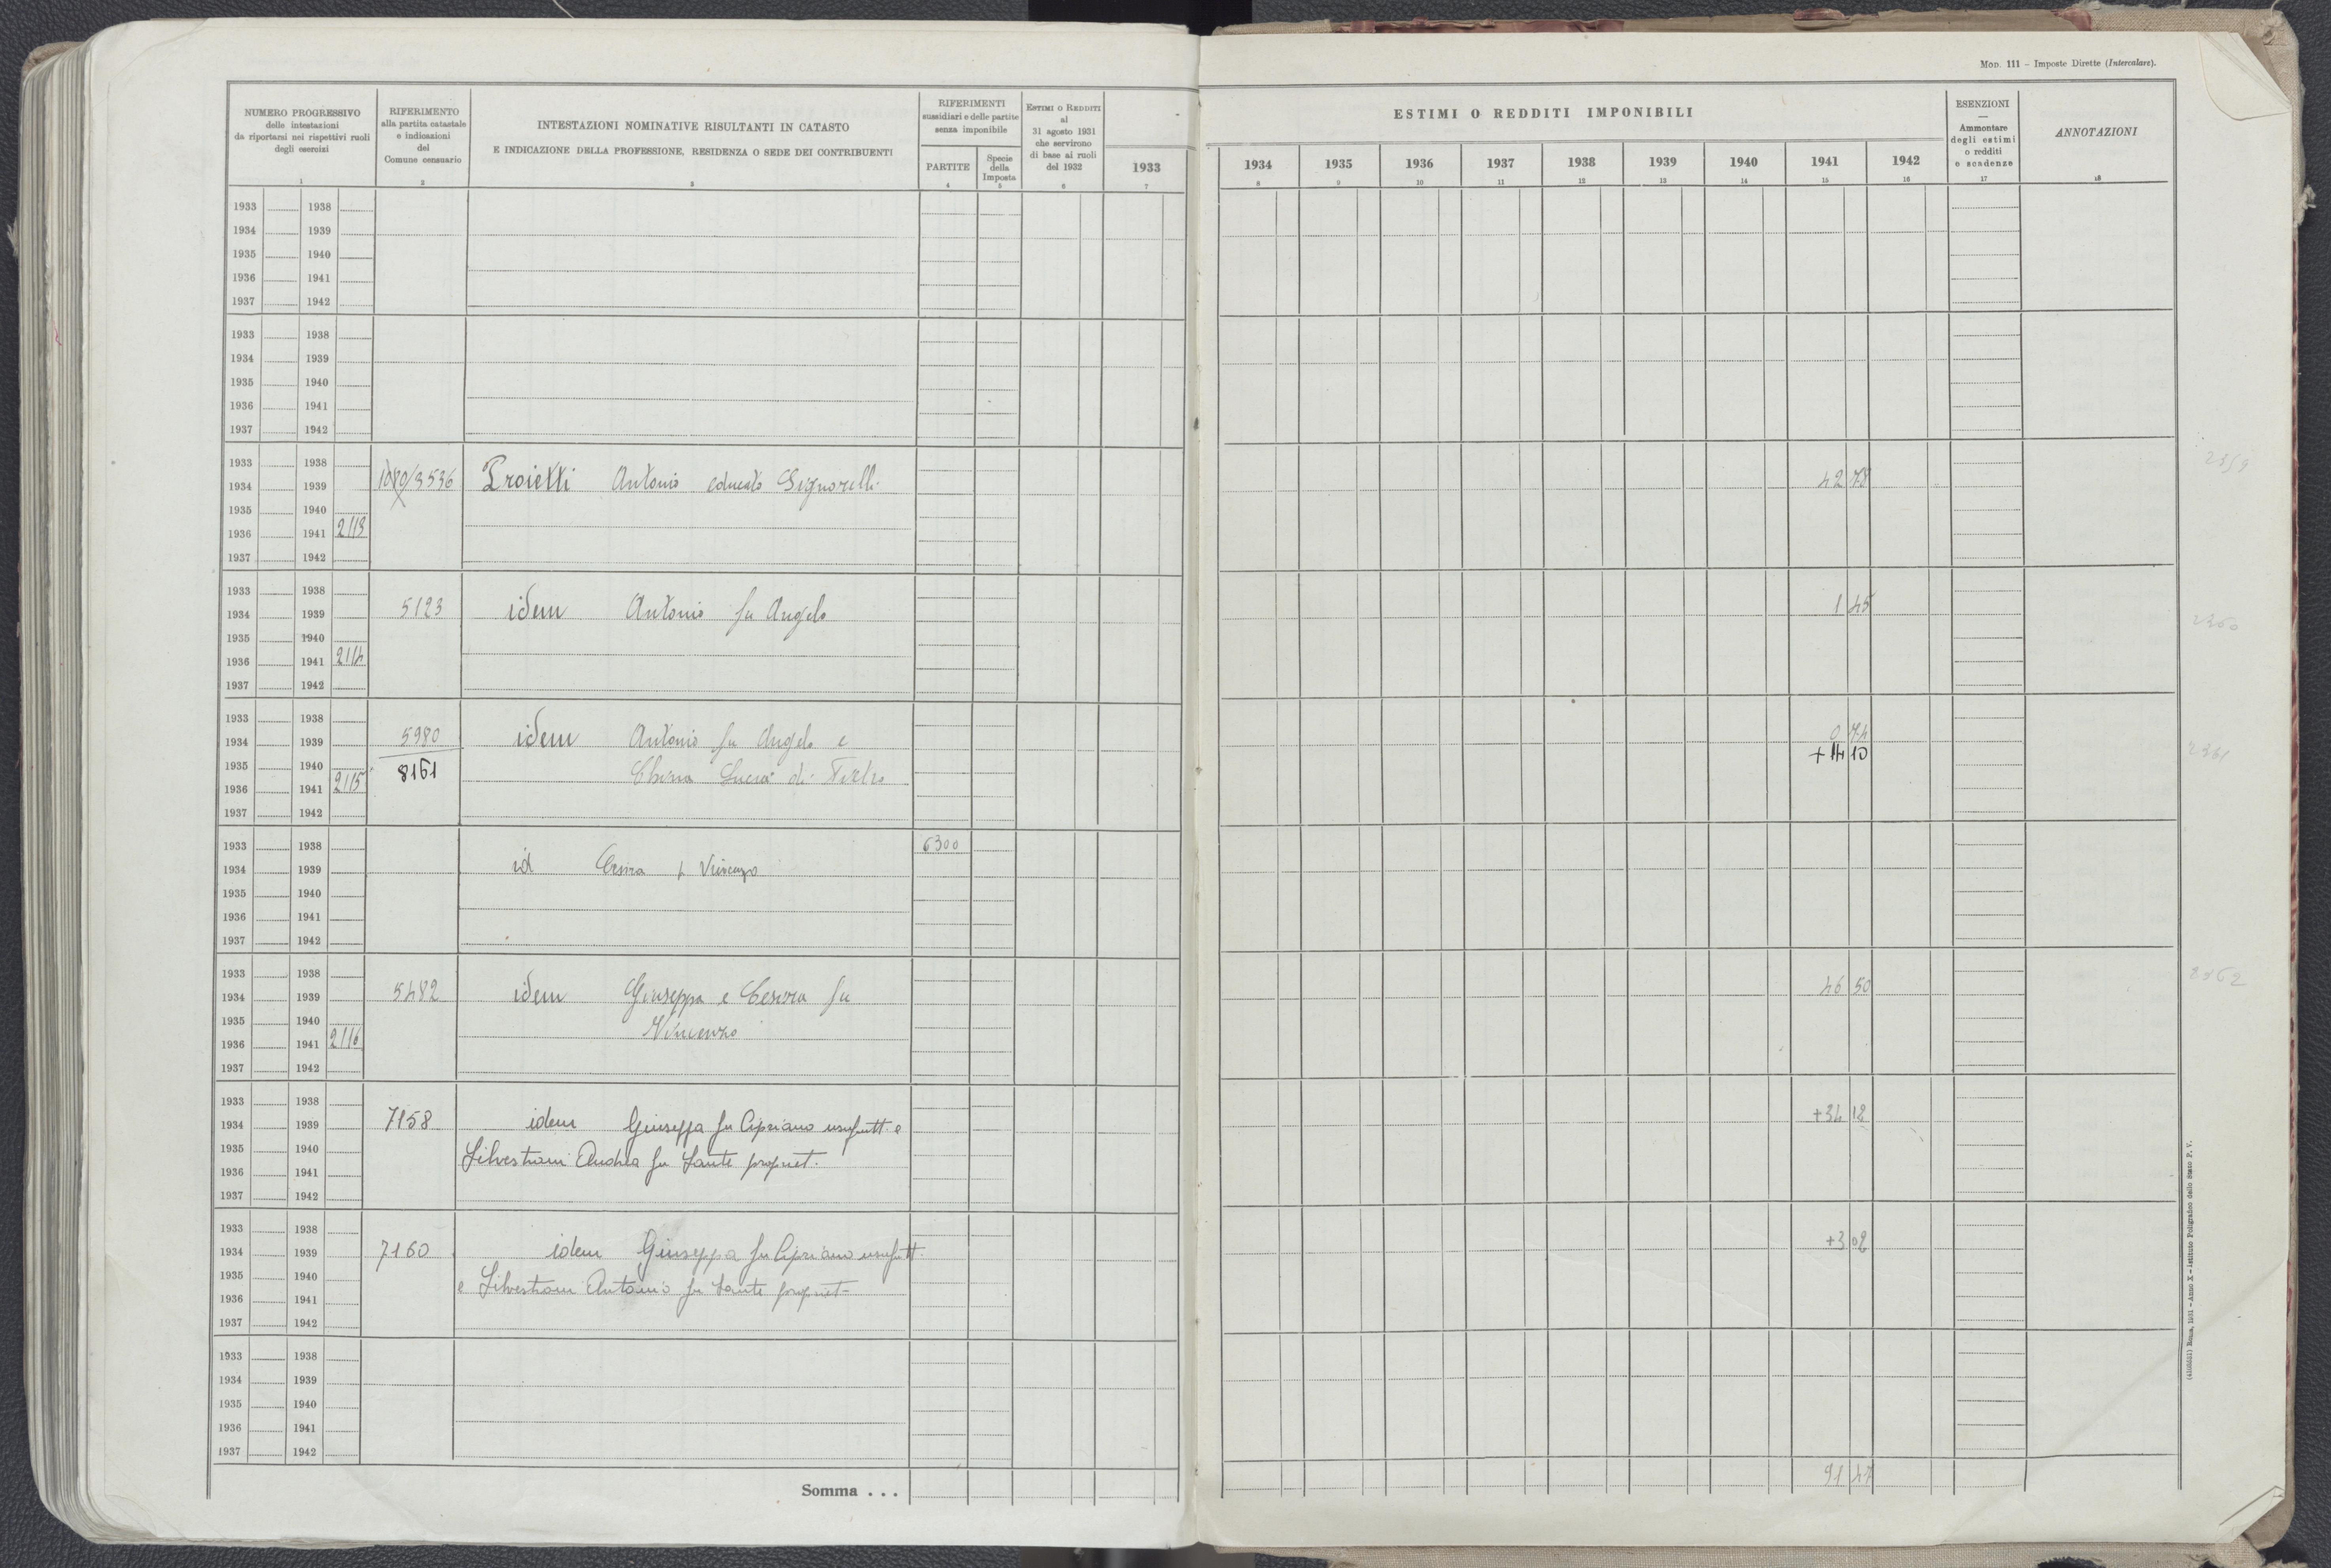 Mod. 111 – Imposte Dirette (Intercalare).
NUMERO PROGRESSIVO
delle intestazioni
da riportarsi nei rispettivi ruoli
degli esercizi
1
RIFERIMENTO
alla partita catastale
e indicazioni
del
Comune censuario
2
INTESTAZIONI NOMINATIVE RISULTANTI IN CATASTO
E INDICAZIONE DELLA PROFESSIONE, RESIDENZA O SEDE DEI CONTRIBUENTI
3
RIFERIMENTI
sussidiari e delle partite
senza imponibile
PARTITE
4
Specie
della
Imposta
5
ESTIMI O REDDITI
al
31 agosto 1931
che servirono
di base ai ruoli
del 1932
6
1933
7
ESTIMI O REDDITI IMPONIBILI
1934 1935 1936 1937 1938 1939 1940 1941 1942
8 9 10 11 12 13 14 15 16
ESENZIONI
—
Ammontare
degli estimi
o redditi
e scadenze
17
ANNOTAZIONI
18
1933 1938
1934 1939
1935 1940
1936 1941
1937 1942
1933 1938
1934 1939
1935 1940
1936 1941
1937 1942
1933 1938
1934 1939 /3536 Proietti Antonio educato Signorelli 42 78 2359
1935 1940
1936 1941 2113
1937 1942
1933 1938
1934 1939 5123 idem Antonio fu Angelo 1 45 2360
1935 1940
1936 1941 2114
1937 1942
1933 1938
1934 1939 5980 idem Antonio fu Angelo e 0 74
1935 1940 8161 di Pietro +14 10 2361
1936 1941 2115
1937 1942
1933 1938 6300
1934 1939 id Cesira fu Vincenzo
1935 1940
1936 1941
1937 1942
1933 1938
1934 1939 5482 idem Giuseppa e Cesira fu 46 50 2362
1935 1940 Vincenzo
1936 1941 2116
1937 1942
1933 1938
1934 1939 7158 idem Giuseppa fu Cipriano usufrutt. e +34 12
1935 1940 Silvestroni Andrea fu Sante propriet.
1936 1941
1937 1942
1933 1938
1934 1939 7160 idem Giuseppa fu Cipriano usufrutt. +3 02
1935 1940 e Silvestroni Antonio fu Sante propriet-
1936 1941
1937 1942
1933 1938
1934 1939
1935 1940
1936 1941
1937 1942
Somma . . . 91 47
Roma, 1931 – Anno X – Istituto Poligrafico dello Stato P. V.